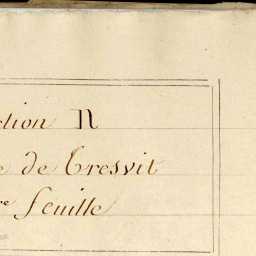 ction N
e de Tresvit
re feuille